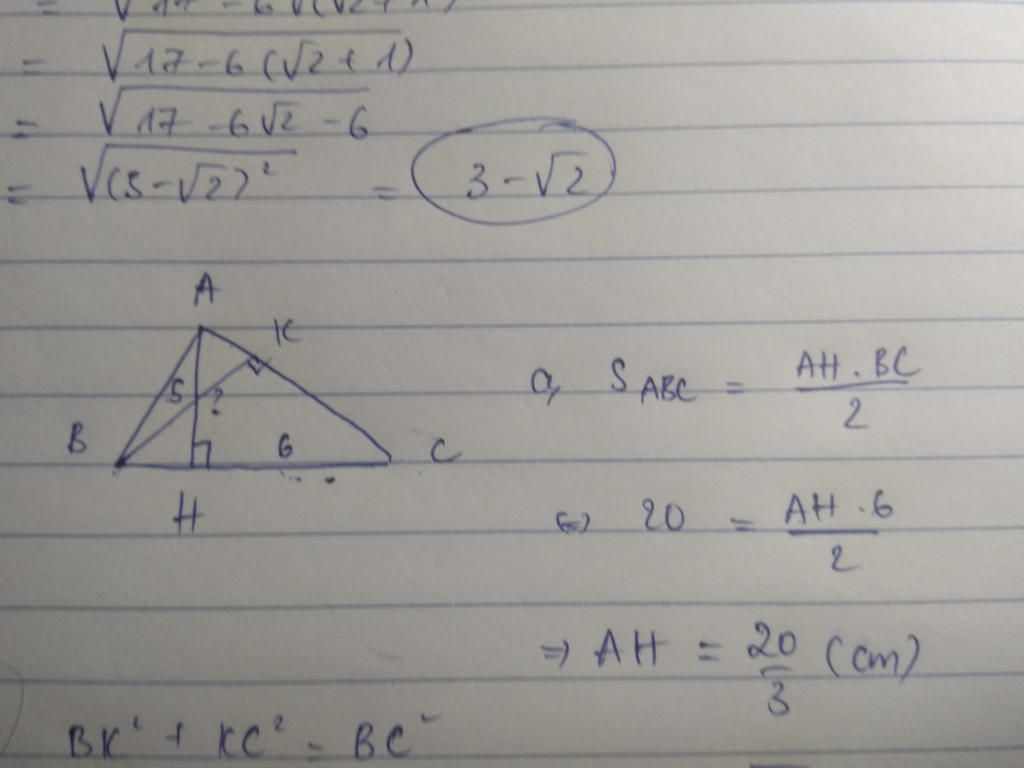 = √(17 - 6(√2 + 1))
= √(17 - 6√2 - 6)
= √((3 - √2)²) = 3 - √2
A
K
5
?
B
6
C
H
a, S ABC = AH . BC / 2
⇔ 20 = AH . 6 / 2
⇒ AH = 20/3 (cm)
BK² + KC² = BC²